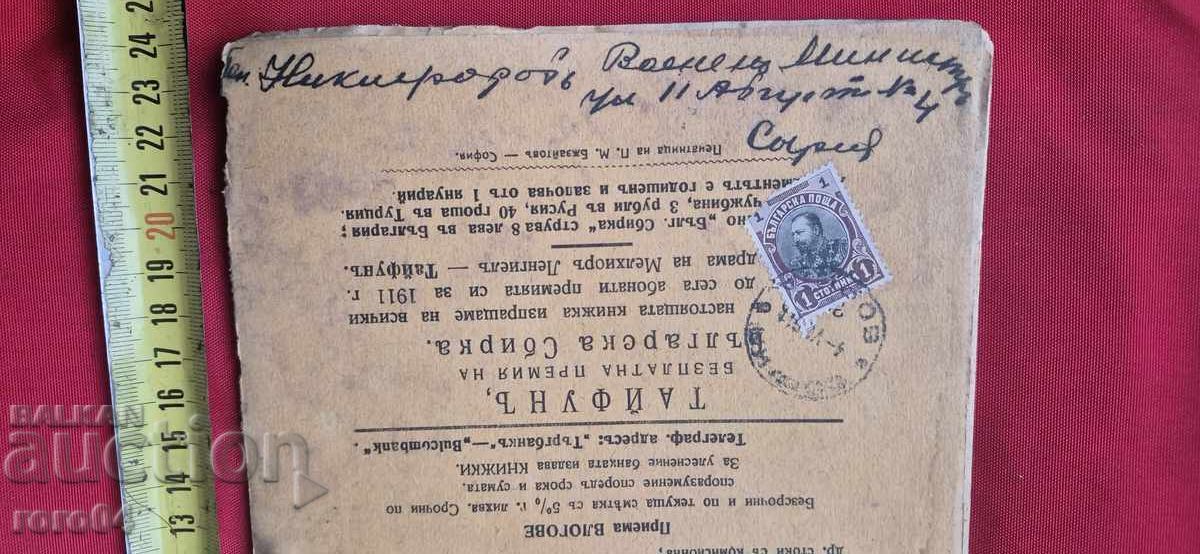 Ген. Никифоровъ Военен Министръ
ул 11 Августъ № 4
София
Печатница на П. М. Бжзайтовъ — София.
ментътъ е годишенъ и започва отъ 1 януарий.
чужбина, 3 рубли въ Русия, 40 гроша въ Турция.
но „Бълг. Сбирка“ струва 8 лева въ България;
драма на Мелхиоръ Ленгиелъ — Тайфунъ.
до сега абонати премията си за 1911 г.
настоящата книжка изпращаме на всички
ългарска Сбирка.
БЕЗПЛАТНА ПРЕМИЯ НА
ТАЙФУНЪ,
Телеграф. адресъ: „Търгбанкъ“—„Bulcombank“.
За улеснение банката издава КНИЖКИ.
споразумение споредъ срока и сумата.
Безсрочни и по текуща смѣтка съ 5% г. лихва. Срочни по
Приема ВЛОГОВЕ
др. стоки съ комисионна;
1
1
БЪЛГАРСКА ПОЩА
1 СТОТИНКА 1
BALKAN
auction
roro64
13 14 15 16 17 18 19 20 21 22 23 24